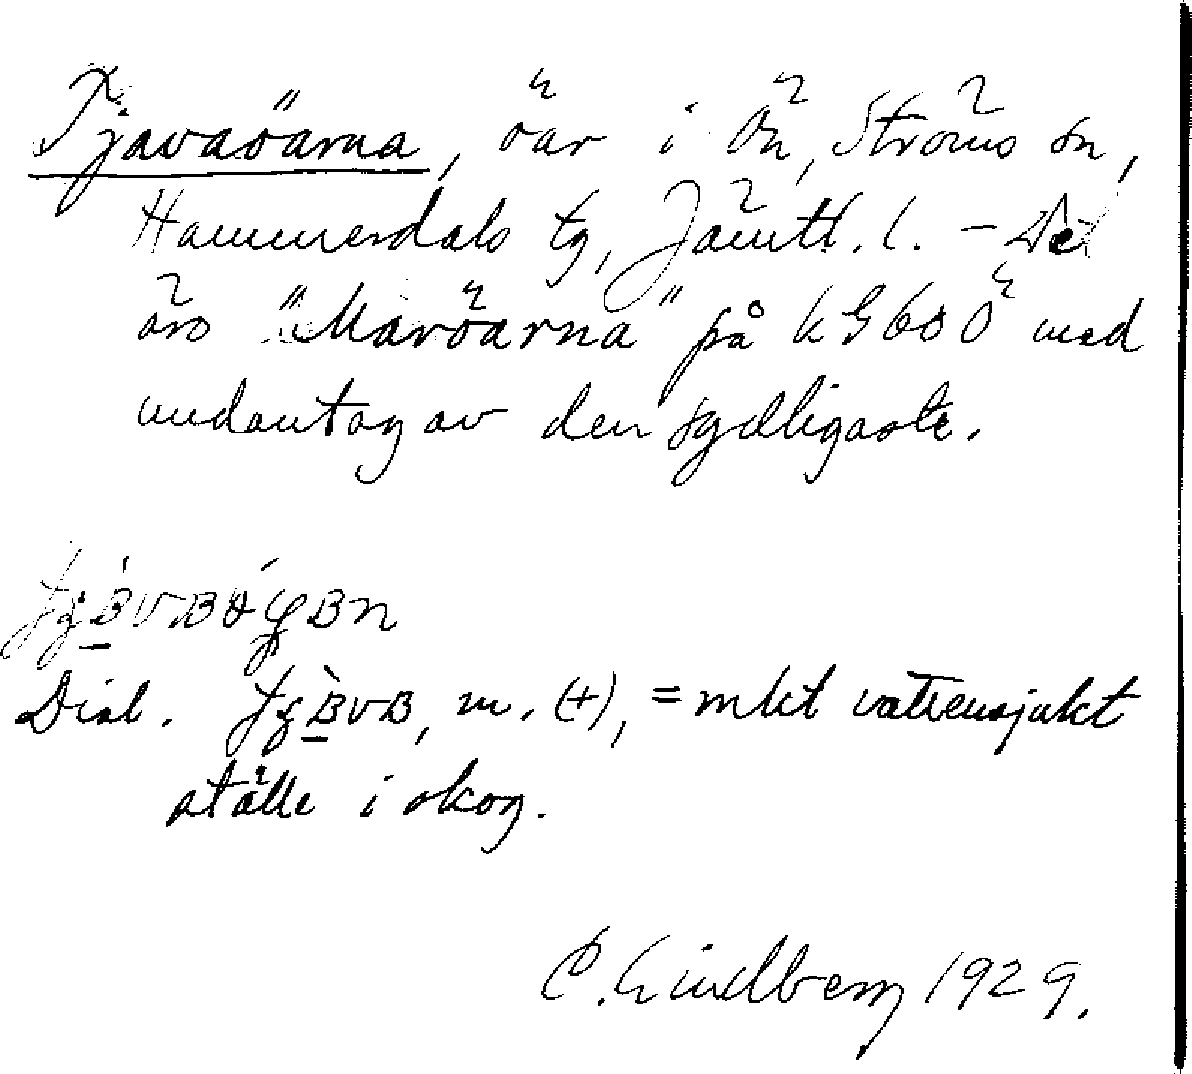 Tjavaöarna, öar i Ön, Ströms sn,
Hammerdals tg, Jämtl. l. – Det
äro "Maröarna" på kG 68 Ö med
undantag av den sydligaste.
Dial. m. (+), = mkt vattensjukt
ställe i skog.
C. Lindberg 1929.